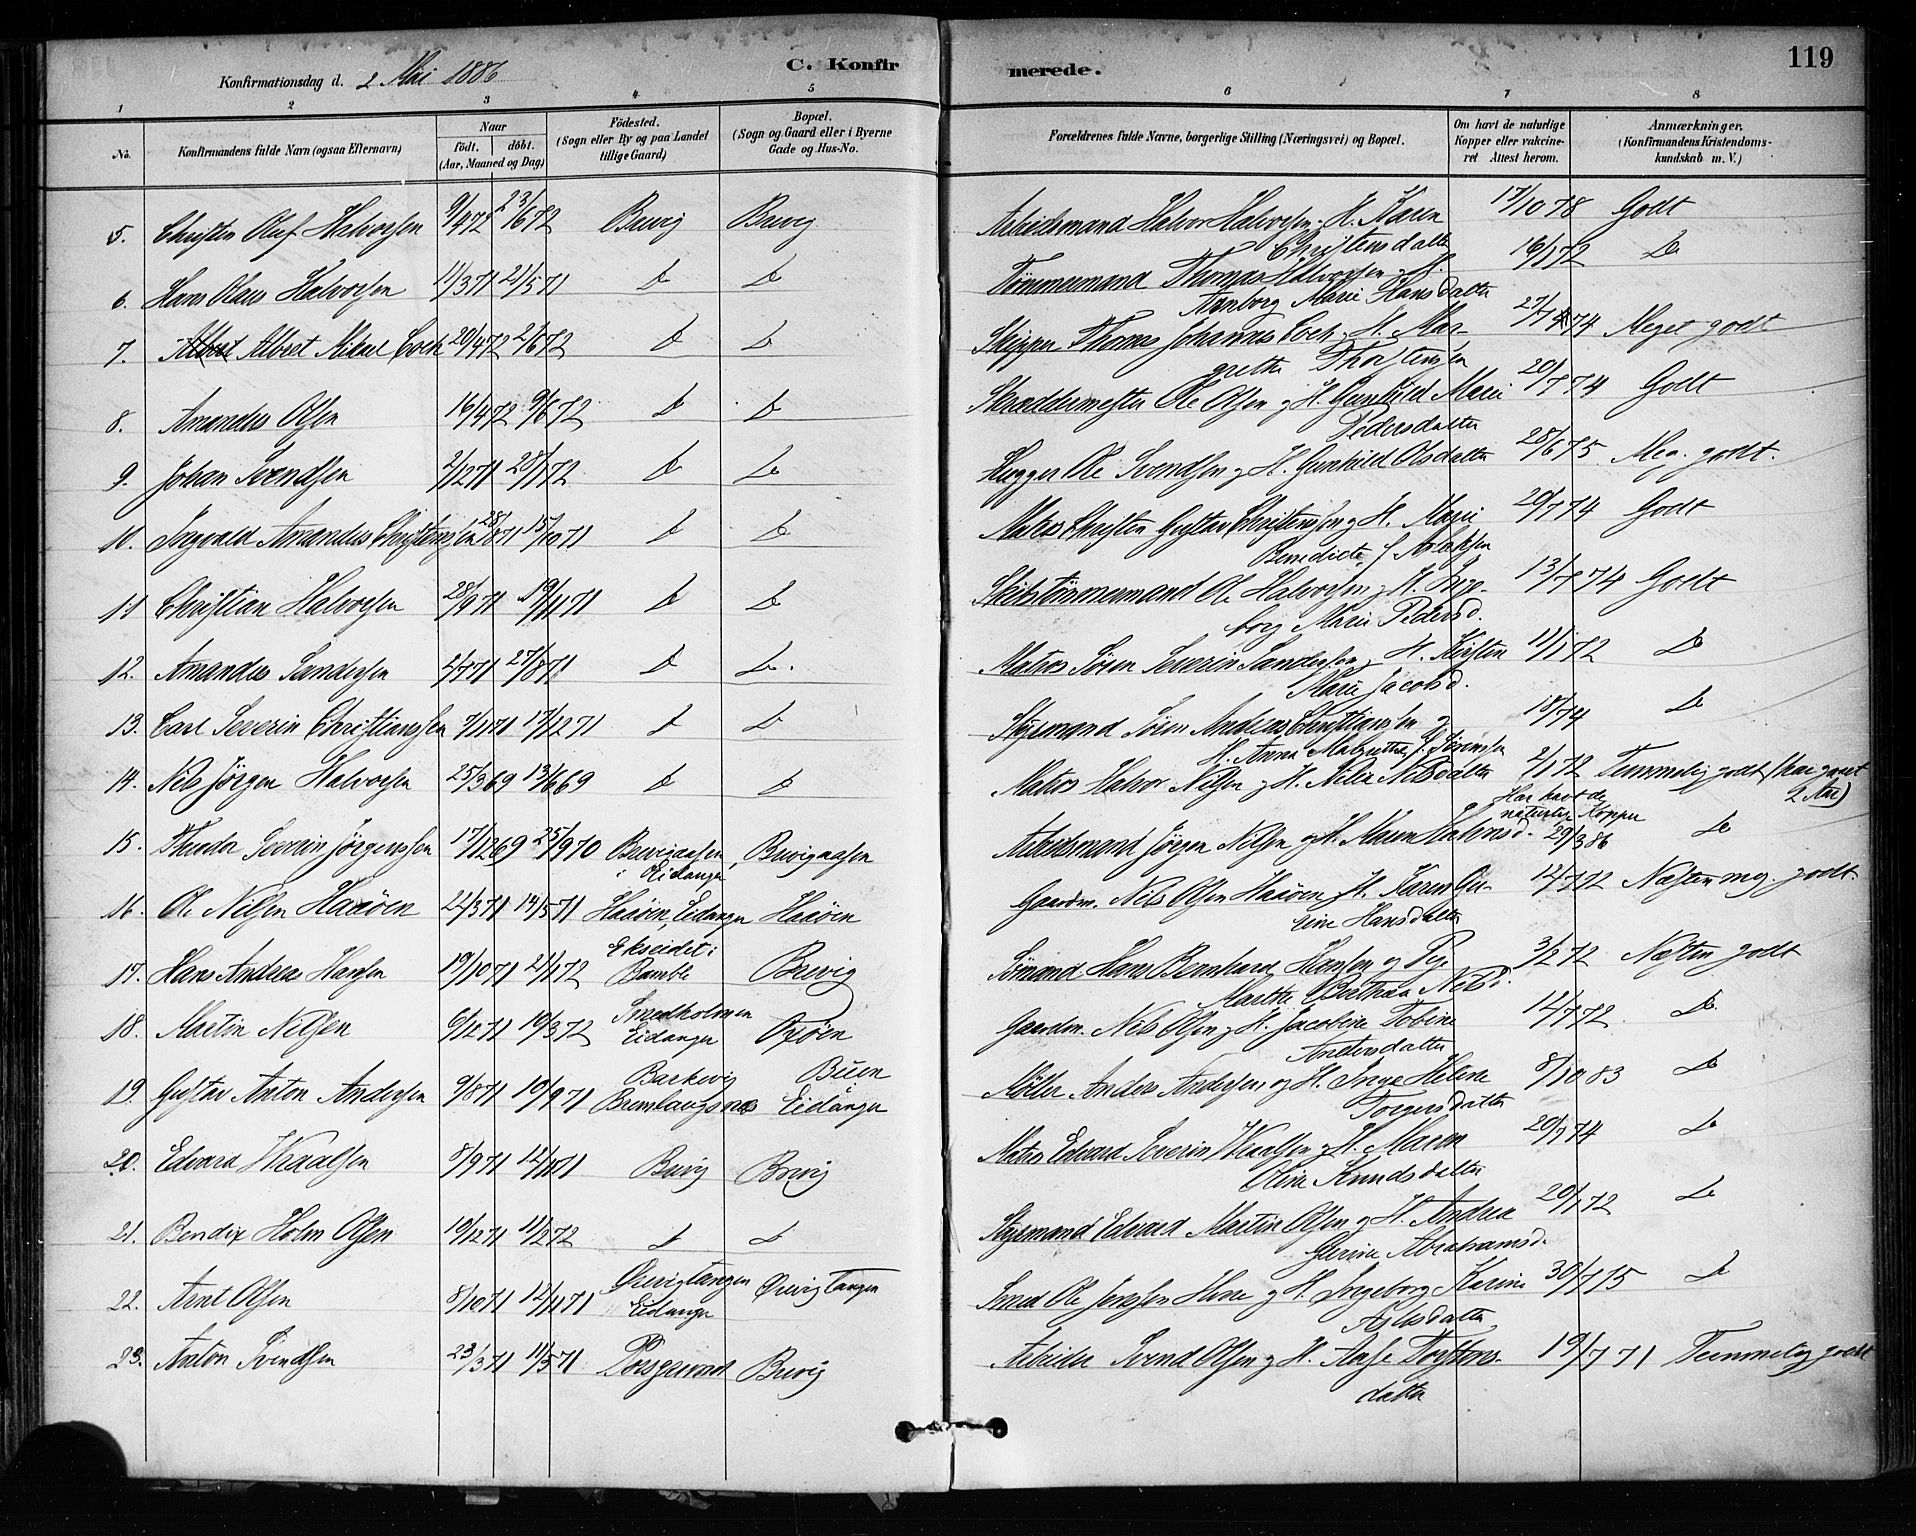 119
C. Konfirmerede.
Konfirmationsdag d. 2 Mai 1886
1 2 3 4 5 6 7 8
No. Konfirmandens fulde Navn (ogsaa Efternavn) Naar födt. döbt. (Aar, Maaned og Dag) Födested. (Sogn eller By og paa Landet tillige Gaard) Bopæl. (Sogn og Gaard eller i Byerne Gade og Hus-No. Forældrenes fulde Navne, borgerlige Stilling (Næringsvei) og Bopæl. Om havt de naturlige Kopper eller vakcineret Attest herom. Anmærkninger. (Konfirmandens Kristendomskundskab m. V.)
5. Christen Oluf Halvorsen 9/4 72 23/6 72 Brevig Brevig Arbeidsmand Halvor Halvorsen, H. Karen 17/10 78 Godt
Christensdatter
6. Hans Olaus Halvorsen 11/3 71 21/5 71 D D Tømmermand Thomas Halvorsen, H. 16/1 72 D
Anborg Marie Hansdatter
7. Albert Mikael Coch 29/4 72 2/6 72 D D Skipper Thomas Johannes Coch, H. Mar- 27/7 74 Meget godt
grethe Thorstensen
8. Amandus Olsen 16/4 72 9/6 72 D D Skræddermester Ole Olsen og H. Gunhild Marie 20/7 74 Godt
Pedersdatter
9. Johan Svendsen 2/12 71 28/1 72 D D Hugger Ole Svendsen og H. Gunhild Olsdatter 28/6 75 Meg. godt.
10. Ingvald Amandus Christensen 28/8 71 15/10 71 D D Matros Christen Gustav Christensen og H. Marie 20/7 74 Godt
Benedicte f. Aslaksen
11 Christian Halvorsen 28/9 71 19/11 71 D D Skibstømmermand Ole Halvorsen og H. Inge- 13/7 74 Godt
borg Marie Pedersd.
12. Amandus Sandersen 2/7 71 27/8 71 D D. Matros Søren Severin Sandersen, H. Kirsten 11/1 72 D
Marie Jacobsd.
13. Carl Severin Christianssen 7/11 71 17/12 71 D D Styrmand Søren Andreas Christianssen og 18/ 74 D
H. Anna Mabrethe f. Sørensen
14. Nils Jörgen Halvorsen 25/3 69 13/6 69 D D Matros Halvor Nilsen og H. Nilia Nilsdatter 2/1 72 Temmelig godt (har gaaet
2 Aar)
15. Theodor Severin Jörgenssen 17/12 69 25/9 70 Brevigaasen Brevigaasen Arbeidsmand Jörgen Nilsen og H. Maren Halvorsd. Har havt de naturlige Kopper 29/3 86 D
i Eidanger
16. Ole Nilsen Haaöen 24/3 71 14/5 71 Haaöen, Eidanger Haaöen Gaardm. Nils Olsen Haaöen, H. Karen Gu- 12/7 72 Næsten meg. godt.
rine Hansdatter
17. Hans Andreas Hansen 19/10 71 21/1 72 Ekseidet i Bamble Brevig Sømand Hans Bernhard Hansen og Pige 3/2 72 Næsten godt
Marthe Berthea Nilsd.
18. Martin Nilsen 6/12 71 10/3 72 Smedholmen Eidanger Oxöen Gaardm. Nils Olsen og H. Jacobine Tobine 12/7 72 D
Andersdatter
19. Gustav Anton Andersen 9/8 71 10/9 71 Barkevig Brunlaugsnæs Buen Eidanger Møller Anders Andersen, og H. Inge Helene 8/10 83 D
Torgersdatter
20. Edvard Wraalsen 8/9 71 12/11 71 Brevig Brevig Matros Edvard Severin Wraalsen og H. Maren 20/7 74 D
Oline Knudsdatter
21. Bendix Holm Olsen 19/12 71 11/2 72 D D Styrmand Edvard Martin Olsen og H. Andrea 20/1 72 D
Abrahamsd.
22. Arnt Olsen 8/10 71 12/11 71 Ørvigtangen Eidanger Ørvigtangen Smed Ole Jenssen og H. Ingeborg Karine 30/7 75 D
Aslesdatter
23. Anton Svendsen 23/3 71 11/5 71 Porsgrund Brevig Arbeider Svend Olsen og H. Aase Torstens- 19/7 71 Temmelig godt
datter